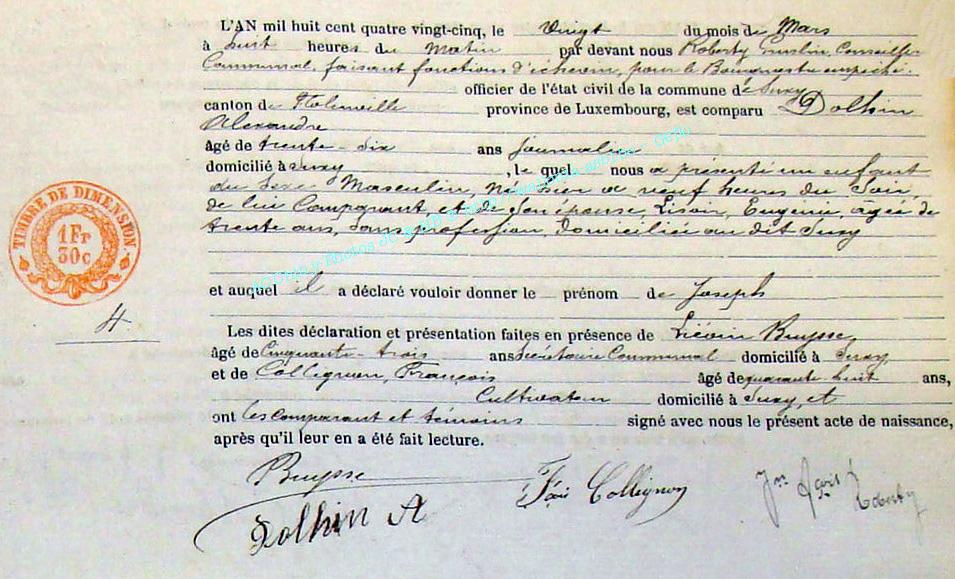 L'AN mil huit cent quatre vingt-cinq, le Vingt du mois de Mars
à huit heures du Matin par devant nous Roberty Conseiller
Communal, faisant fonctions d'échevin, pour le Bourgmestre empêché.
officier de l'état civil de la commune de Suxy
canton de province de Luxembourg, est comparu Dolhin
Alexandre
âgé de trente-six ans journalier
domicilié à Suxy, le quel nous a présenté un enfant
du Sexe Masculin, Né hier a neuf heures du Soir,
de lui Comparant et de Son épouse, Lisoir, Eugénie, âgée de
trente ans, Sans profession, Domiciliée au dit Suxy
et auquel il a déclaré vouloir donner le prénom de Joseph
TIMBRE DE DIMENSION
1 Fr
30c
4
Les dites déclaration et présentation faites en présence de Liévin Buysse,
âgé de Cinquante-trois ans Secrétaire Communal domicilié à Suxy
et de Collignon, François âgé de quarante-huit ans,
Cultivateur domicilié à Suxy, et
ont les comparant et témoins signé avec nous le présent acte de naissance,
après qu'il leur en a été fait lecture.
Buysse
Fçois Collignon
Dolhin A
Roberty